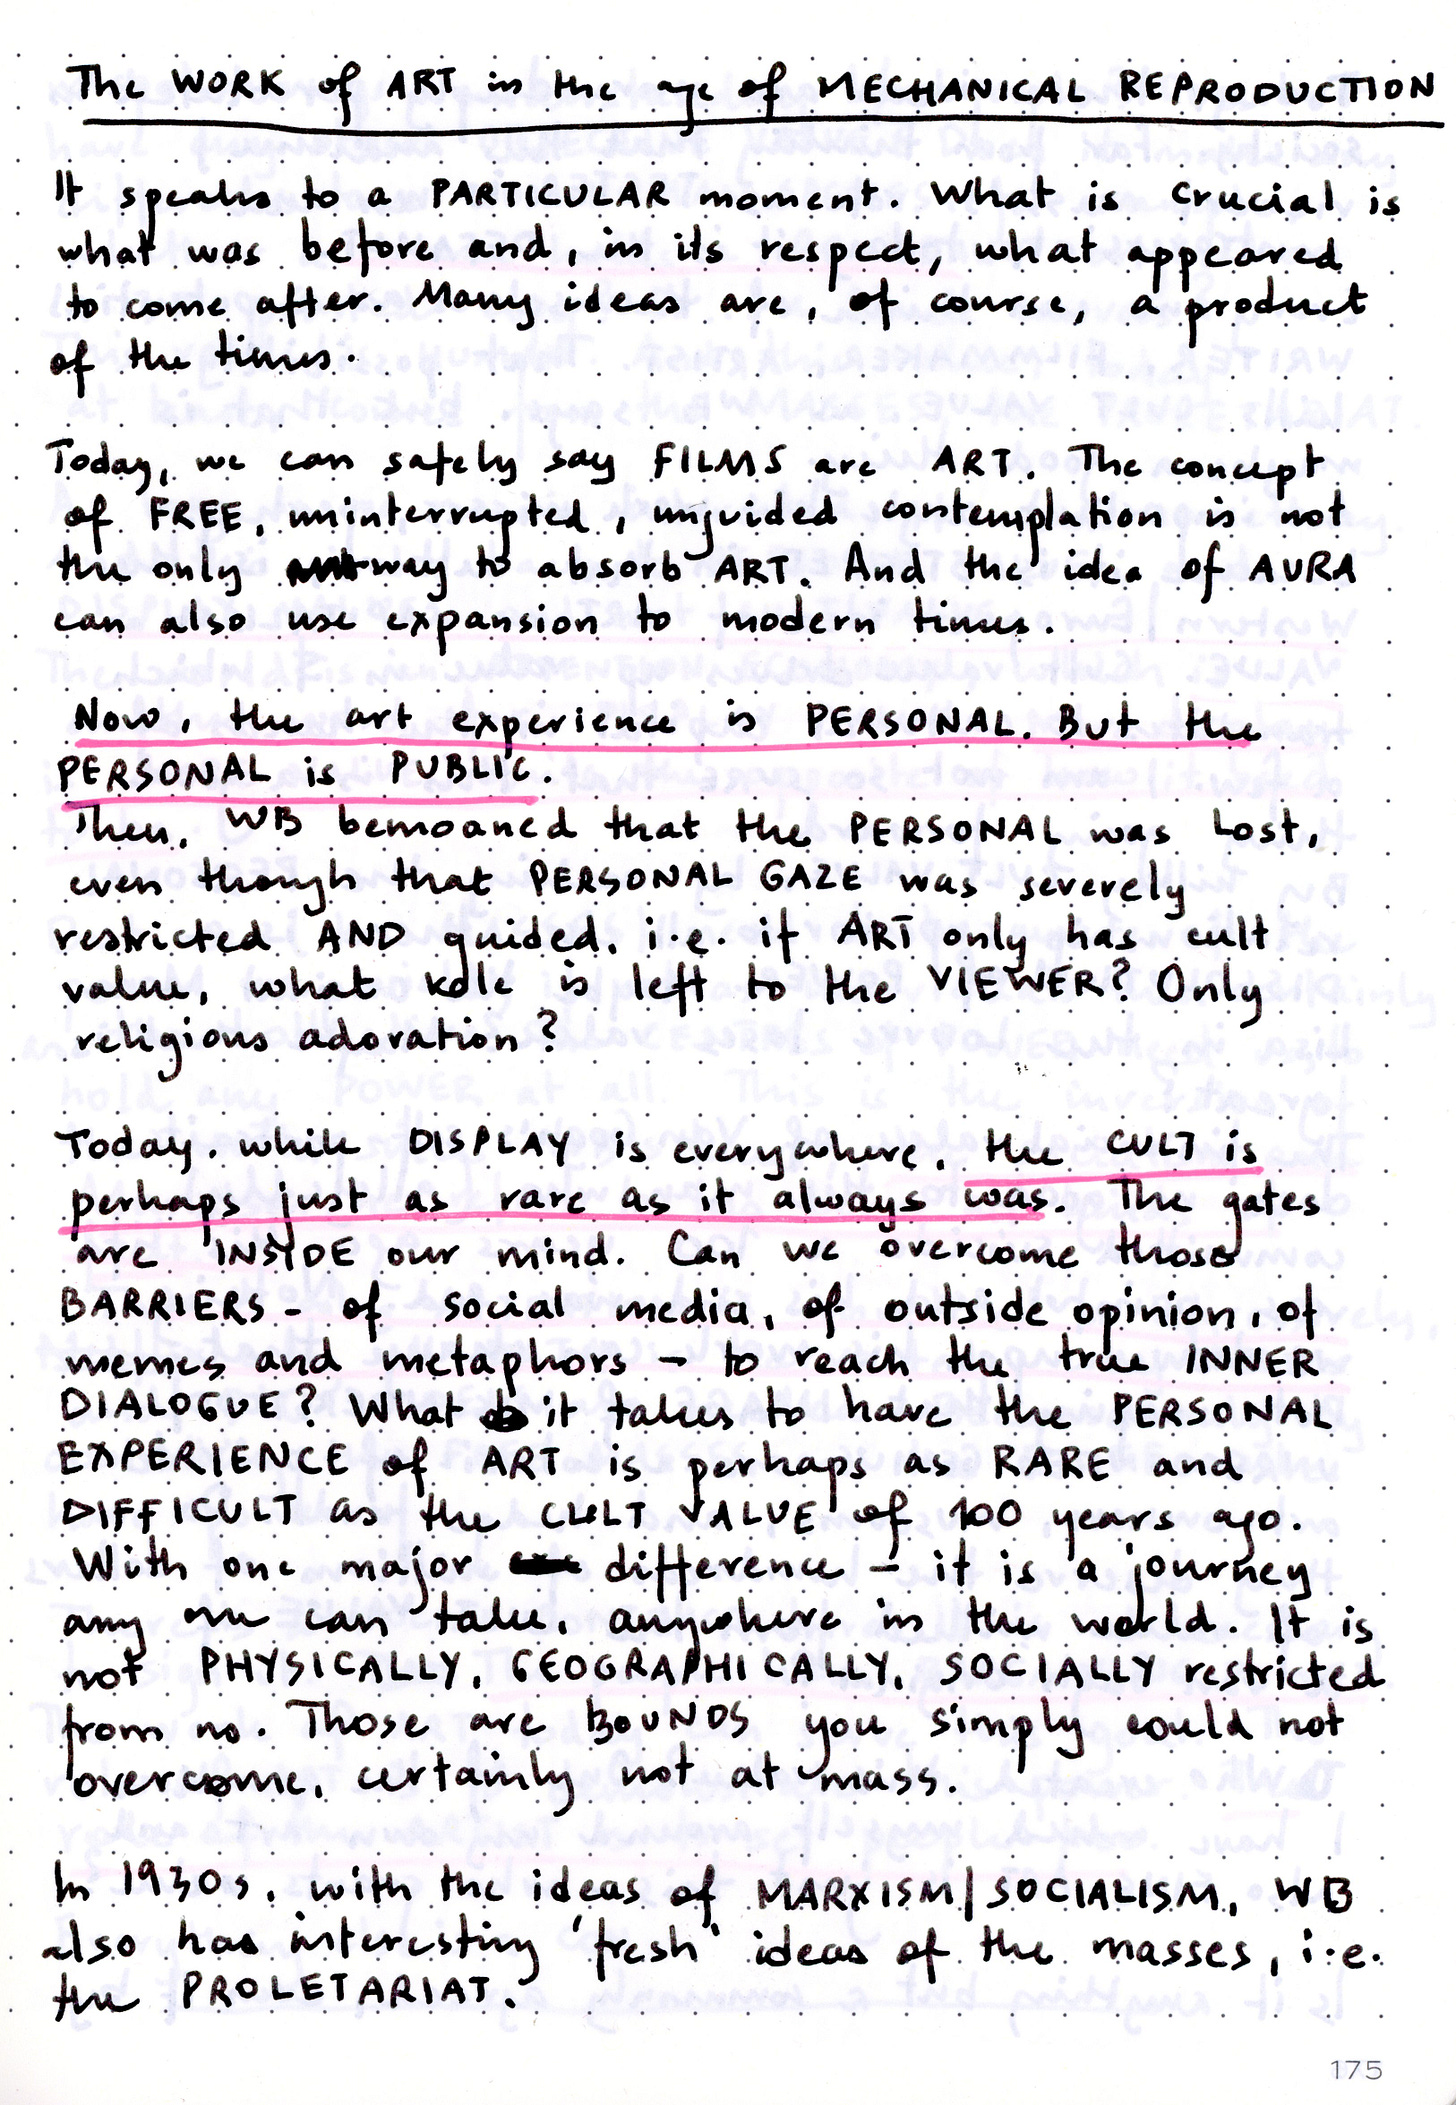 The WORK of ART in the age of MECHANICAL REPRODUCTION
It speaks to a PARTICULAR moment. What is crucial is
what was before and, in its respect, what appeared
to come after. Many ideas are, of course, a product
of the times.
Today, we can safely say FILMS are ART. The concept
of FREE, uninterrupted, unguided contemplation is not
the only way to absorb ART. And the idea of AURA
can also use expansion to modern times.
Now, the art experience is PERSONAL. But the
PERSONAL is PUBLIC.
Then, WB bemoaned that the PERSONAL was lost,
even though that PERSONAL GAZE was severely
restricted AND guided, i.e. if ART only has cult
value, what role is left to the VIEWER? Only
religious adoration?
Today, while DISPLAY is everywhere, the CULT is
perhaps just as rare as it always was. The gates
are INSIDE our mind. Can we overcome those
BARRIERS - of social media, of outside opinion, of
memes and metaphors - to reach the true INNER
DIALOGUE? What it takes to have the PERSONAL
EXPERIENCE of ART is perhaps as RARE and
DIFFICULT as the CULT VALUE of 100 years ago.
With one major difference - it is a journey
any one can take, anywhere in the world. It is
not PHYSICALLY, GEOGRAPHICALLY, SOCIALLY restricted
from no. Those are BOUNDS you simply could not
overcome, certainly not at mass.
In 1930s, with the ideas of MARXISM/SOCIALISM, WB
also has interesting 'fresh' ideas of the masses, i.e.
the PROLETARIAT.
175